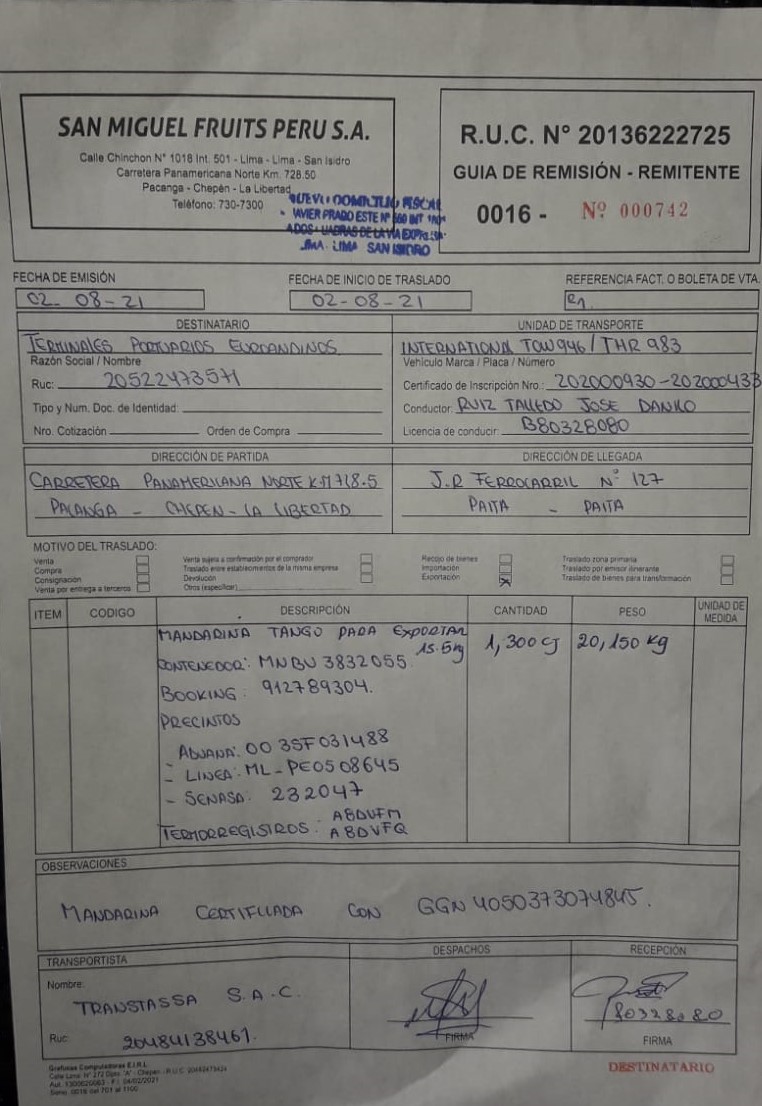 SAN MIGUEL FRUITS PERU S.A.
Calle Chinchon N° 1018 Int. 501 - Lima - Lima - San Isidro
Carretera Panamericana Norte Km. 728.50
Pacanga - Chepén - La Libertad
Teléfono: 730-7300
NUEVO DOMICILIO FISCAL
JAVIER PRADO ESTE Nº 560 INT
LIMA - LIMA SAN ISIDRO
R.U.C. N° 20136222725
GUIA DE REMISIÓN - REMITENTE
0016 - Nº 000742
FECHA DE EMISIÓN
02-08-21
FECHA DE INICIO DE TRASLADO
02-08-21
REFERENCIA FACT. O BOLETA DE VTA.
DESTINATARIO
TERMINALES PORTUARIOS EUROANDINOS
Razón Social / Nombre
Ruc: 20522473571
Tipo y Num. Doc. de Identidad:
Nro. Cotización Orden de Compra
UNIDAD DE TRANSPORTE
INTERNATIONAL TOW946 / THR 983
Vehículo Marca / Placa / Número
Certificado de Inscripción Nro.: 202000930-202000433
Conductor: RUIZ TALLEDO JOSE DANILO
Licencia de conducir: B80328080
DIRECCIÓN DE PARTIDA
CARRETERA PANAMERICANA NORTE KM 728.5
PACANGA - CHEPEN - LA LIBERTAD
DIRECCIÓN DE LLEGADA
J.R FERROCARRIL N° 127
PAITA - PAITA
MOTIVO DEL TRASLADO:
Venta
Compra
Consignación
Venta por entrega a terceros
Venta sujeta a confirmación por el comprador
Traslado entre establecimientos de la misma empresa
Devolución
Otros (especificar)
Recojo de bienes
Importación
Exportación X
Traslado zona primaria
Traslado por emisor itinerante
Traslado de bienes para transformación
ITEM CODIGO DESCRIPCIÓN CANTIDAD PESO UNIDAD DE MEDIDA
MANDARINA TANGO PARA EXPORTAR 1,300 CJ 20,150 Kg
15.5kg
CONTENEDOR: MNBU 3832055
BOOKING: 912789304.
PRECINTOS
ADUANA: 00 35F031488
- LINEA: ML-PE0508645
- SENASA: 232047
TERMORREGISTROS: A8DVFM
A8DVFQ
OBSERVACIONES
MANDARINA CERTIFICADA CON GGN 4050373074845.
TRANSPORTISTA
Nombre:
TRANSTASSA S.A.C.
Ruc: 20484138461.
DESPACHOS
FIRMA
RECEPCIÓN
80328080
FIRMA
Graficas Computadoras E.I.R.L.
DESTINATARIO